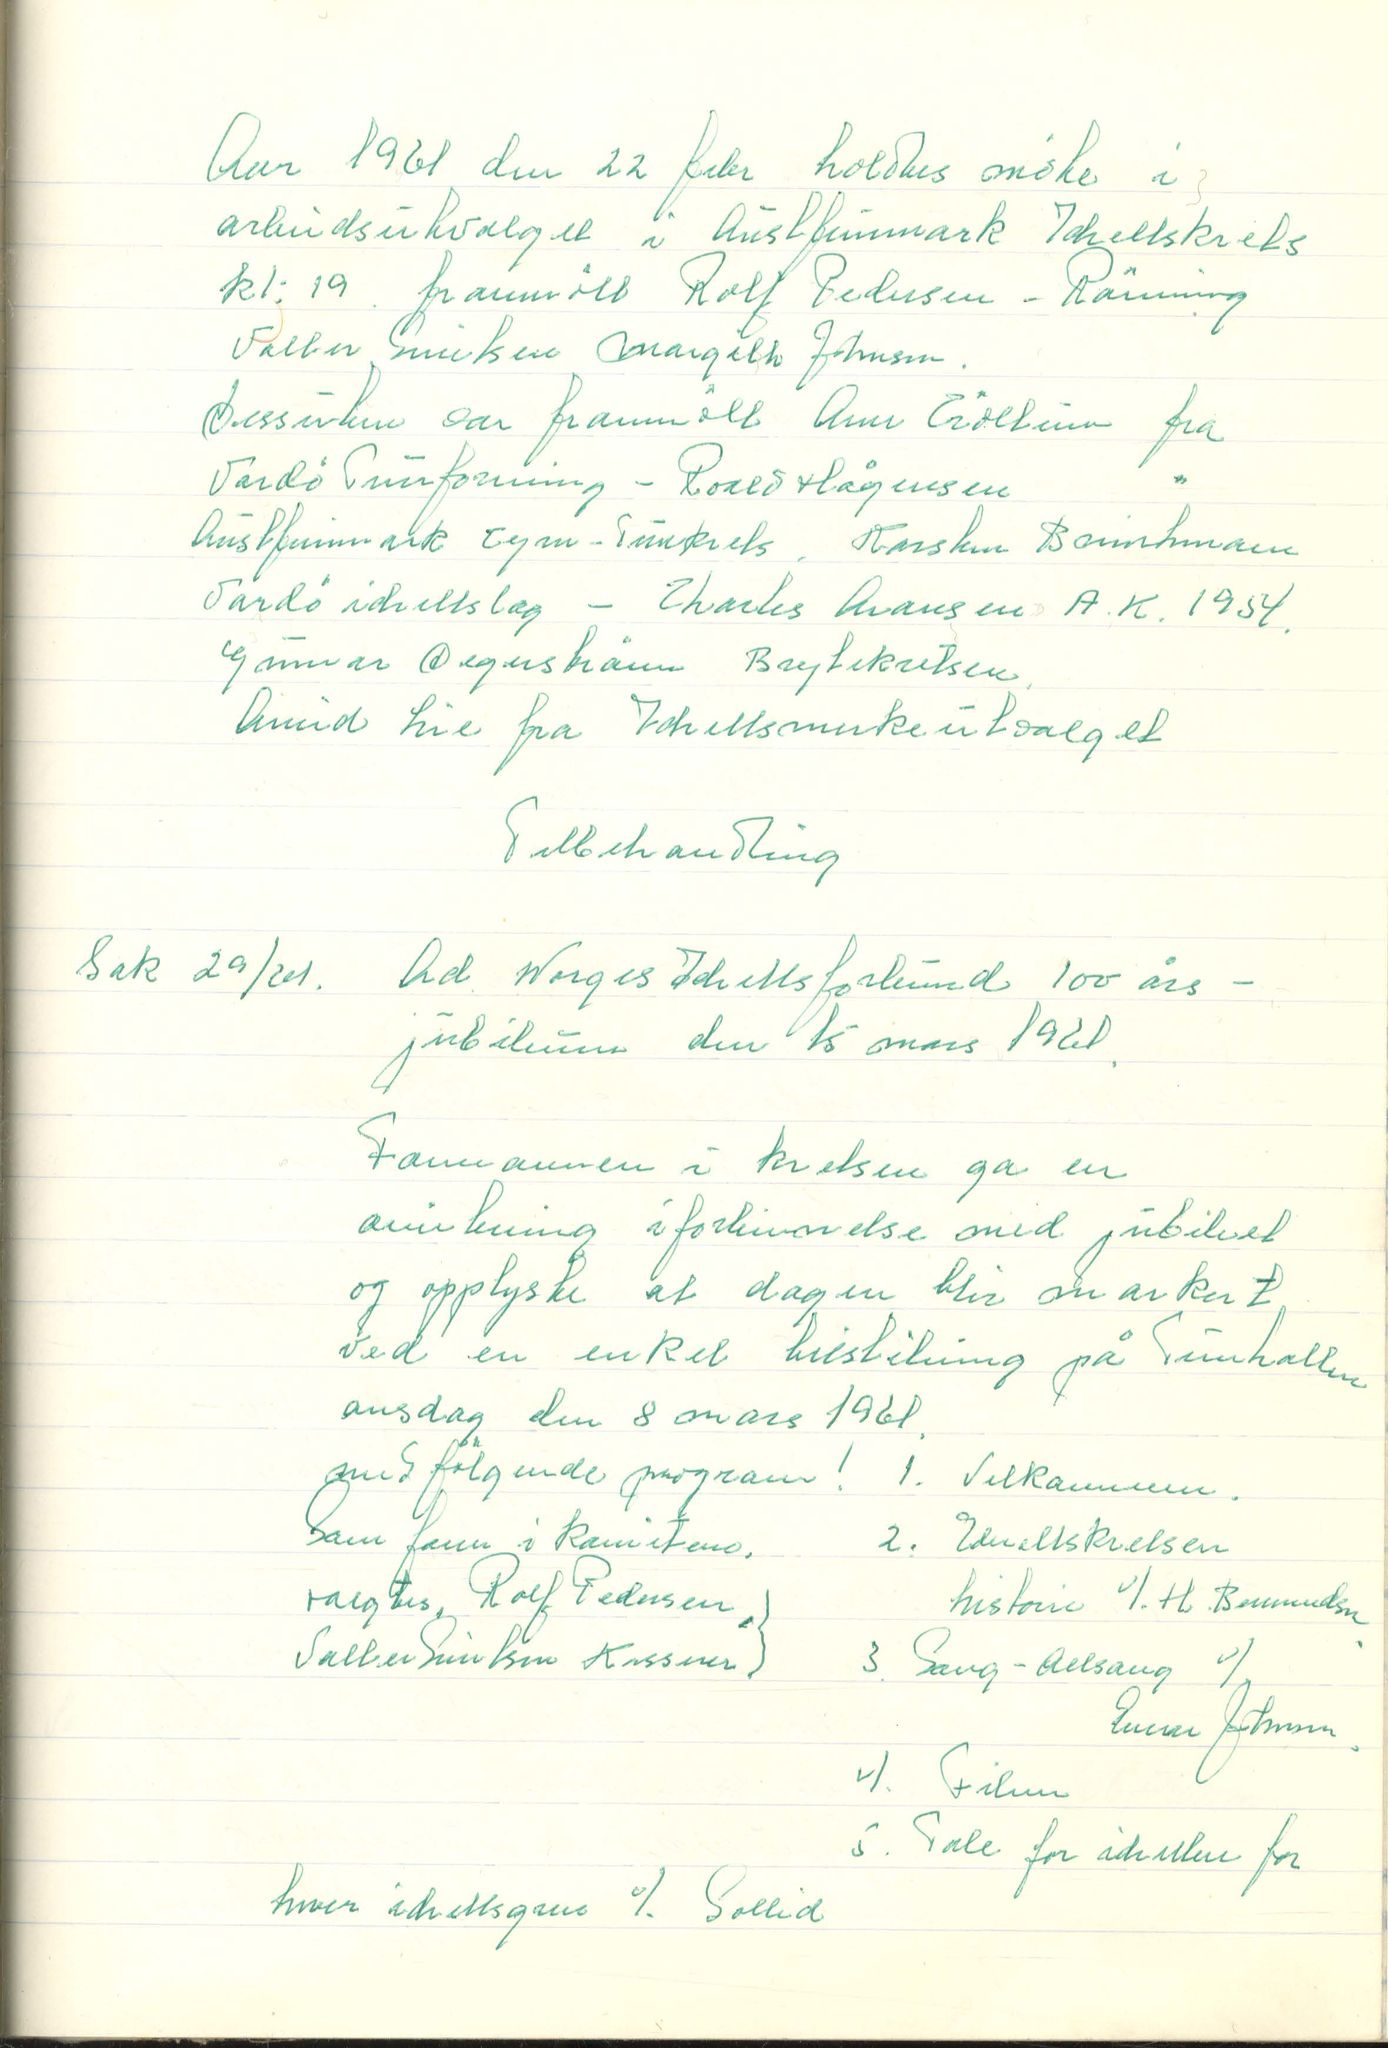 Aar 1961 den 22 febr holdtes møte i
arbeidsutvalget i Austfinnmark Idrettskrets
kl: 19. frammøtt Rolf Pedersen - Rønning
Valter Eriksen Margith Johnsen.
Dessuten var frammøtt Arne Trøttum fra
Vardø Turnforening - Roald Hågensen "
Austfinnmark Gym-Turnkrets. Karsten Brinchmann
Vardø idrettslag - Charles Aransen A.K. 1954.
Gunnar Degerstrøm Brytekretsen.
Arvid Lie fra Idrettsmerkeutvalget
Til behandling
Sak 29/61. Ad Norges Idrettsforbund 100 års-
jubileum den 15 mars 1961.
Formannen i kretsen ga en
orientering i forbindelse med jubileet
og opplyste at dagen blir markert
ved en enkel tilstelning på Turnhallen
onsdag den 8 mars 1961.
med følgende program! 1. Velkommen.
Som form i komiteen. 2. Idrettskretsen
valgtes, Rolf Pedersen historie v/. H. Bermundsen
Valter Eriksen Kasserer 3. Sang - Allsang v/
Einar Johnsen.
4. Film
5. Tale for idretten for
hver idrettsgren v/. Sollid